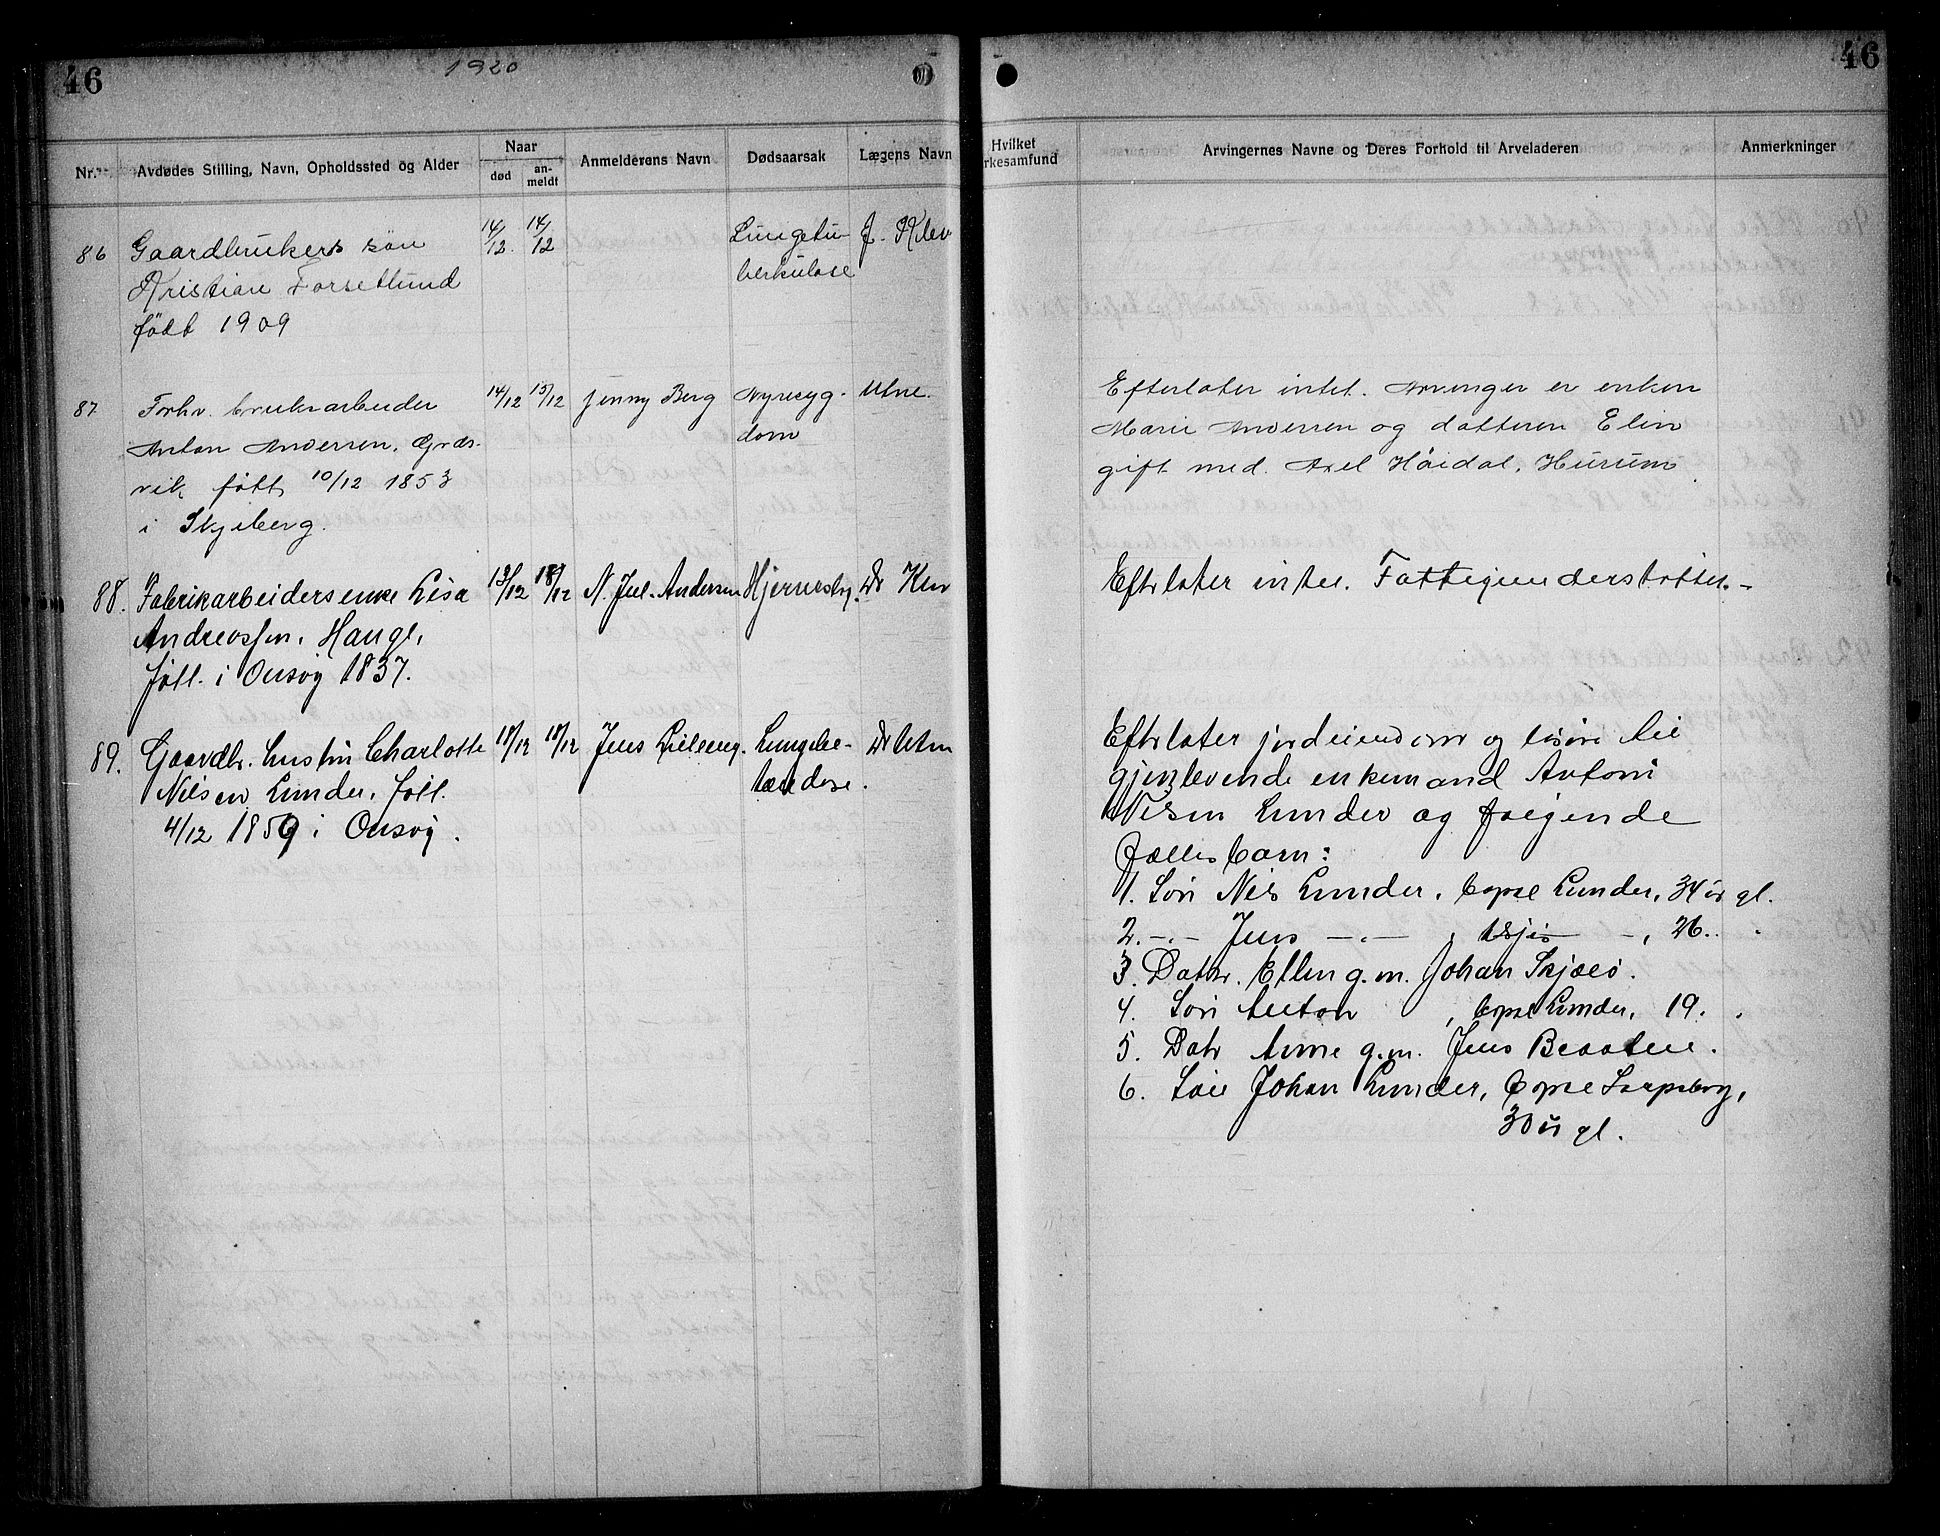 46
1920
46
Nr.
Avdødes Stilling, Navn, Opholdssted og Alder
Naar
død
an-
meldt
Anmelderens Navn
Dødsaarsak
Lægens Navn
Hvilket
rkesamfund
Arvingernes Navne og Deres Forhold til Arveladeren
Anmerkninger
86 Gaardbrukers søn 14/12. 14/12 Lungetu- J. Klev
Kristian Forsetlund berkulose
født 1909
87 Forhv. bruksarbeider 14/12 15/12 Jenny Berg Nyresyg- Utne.
Anton Andersen, Græs- dom
vik født 10/12 1853
i Skjeberg.
Efterlater intet. Arvinger er enken
Marie Andersen og datteren Elin
gift med. Axel Höidal, Hurum
88. Fabrikarbeidersenke Lisa 13/12 18/12 N. Jul. Andersen Hjernesyg. Dr Klev
Andreassen, Hauge,
født i Onsøy 1837.
Efterlater intet. Fattigunderstøttet.-
89. Gaardbr. hustru Charlotte 18/12 18/12 Jens Lilleeng. Lungebe- Dr Utne
Nilsen Lunder, født tændelse.
4/12 1859 i Onsøy.
Efterlater jordeiendom og løsøre til
gjenlevende enkemand Anton
Nilsen Lunder og følgende
fælles barn:
1. Søn Nils Lunder, bopæl Lunder, 34 år gl.
2. -.- Jens -.- , -, 26. .
3. Datter. Ellen g.m. Johan Skjælø.
4. Søn Anton , bopæl Lunder, 19. .
5. Datr Anne g.m. Jens Braaten.
6. Søn Johan Lunder, bopæl Sarpsborg,
30 år gl.